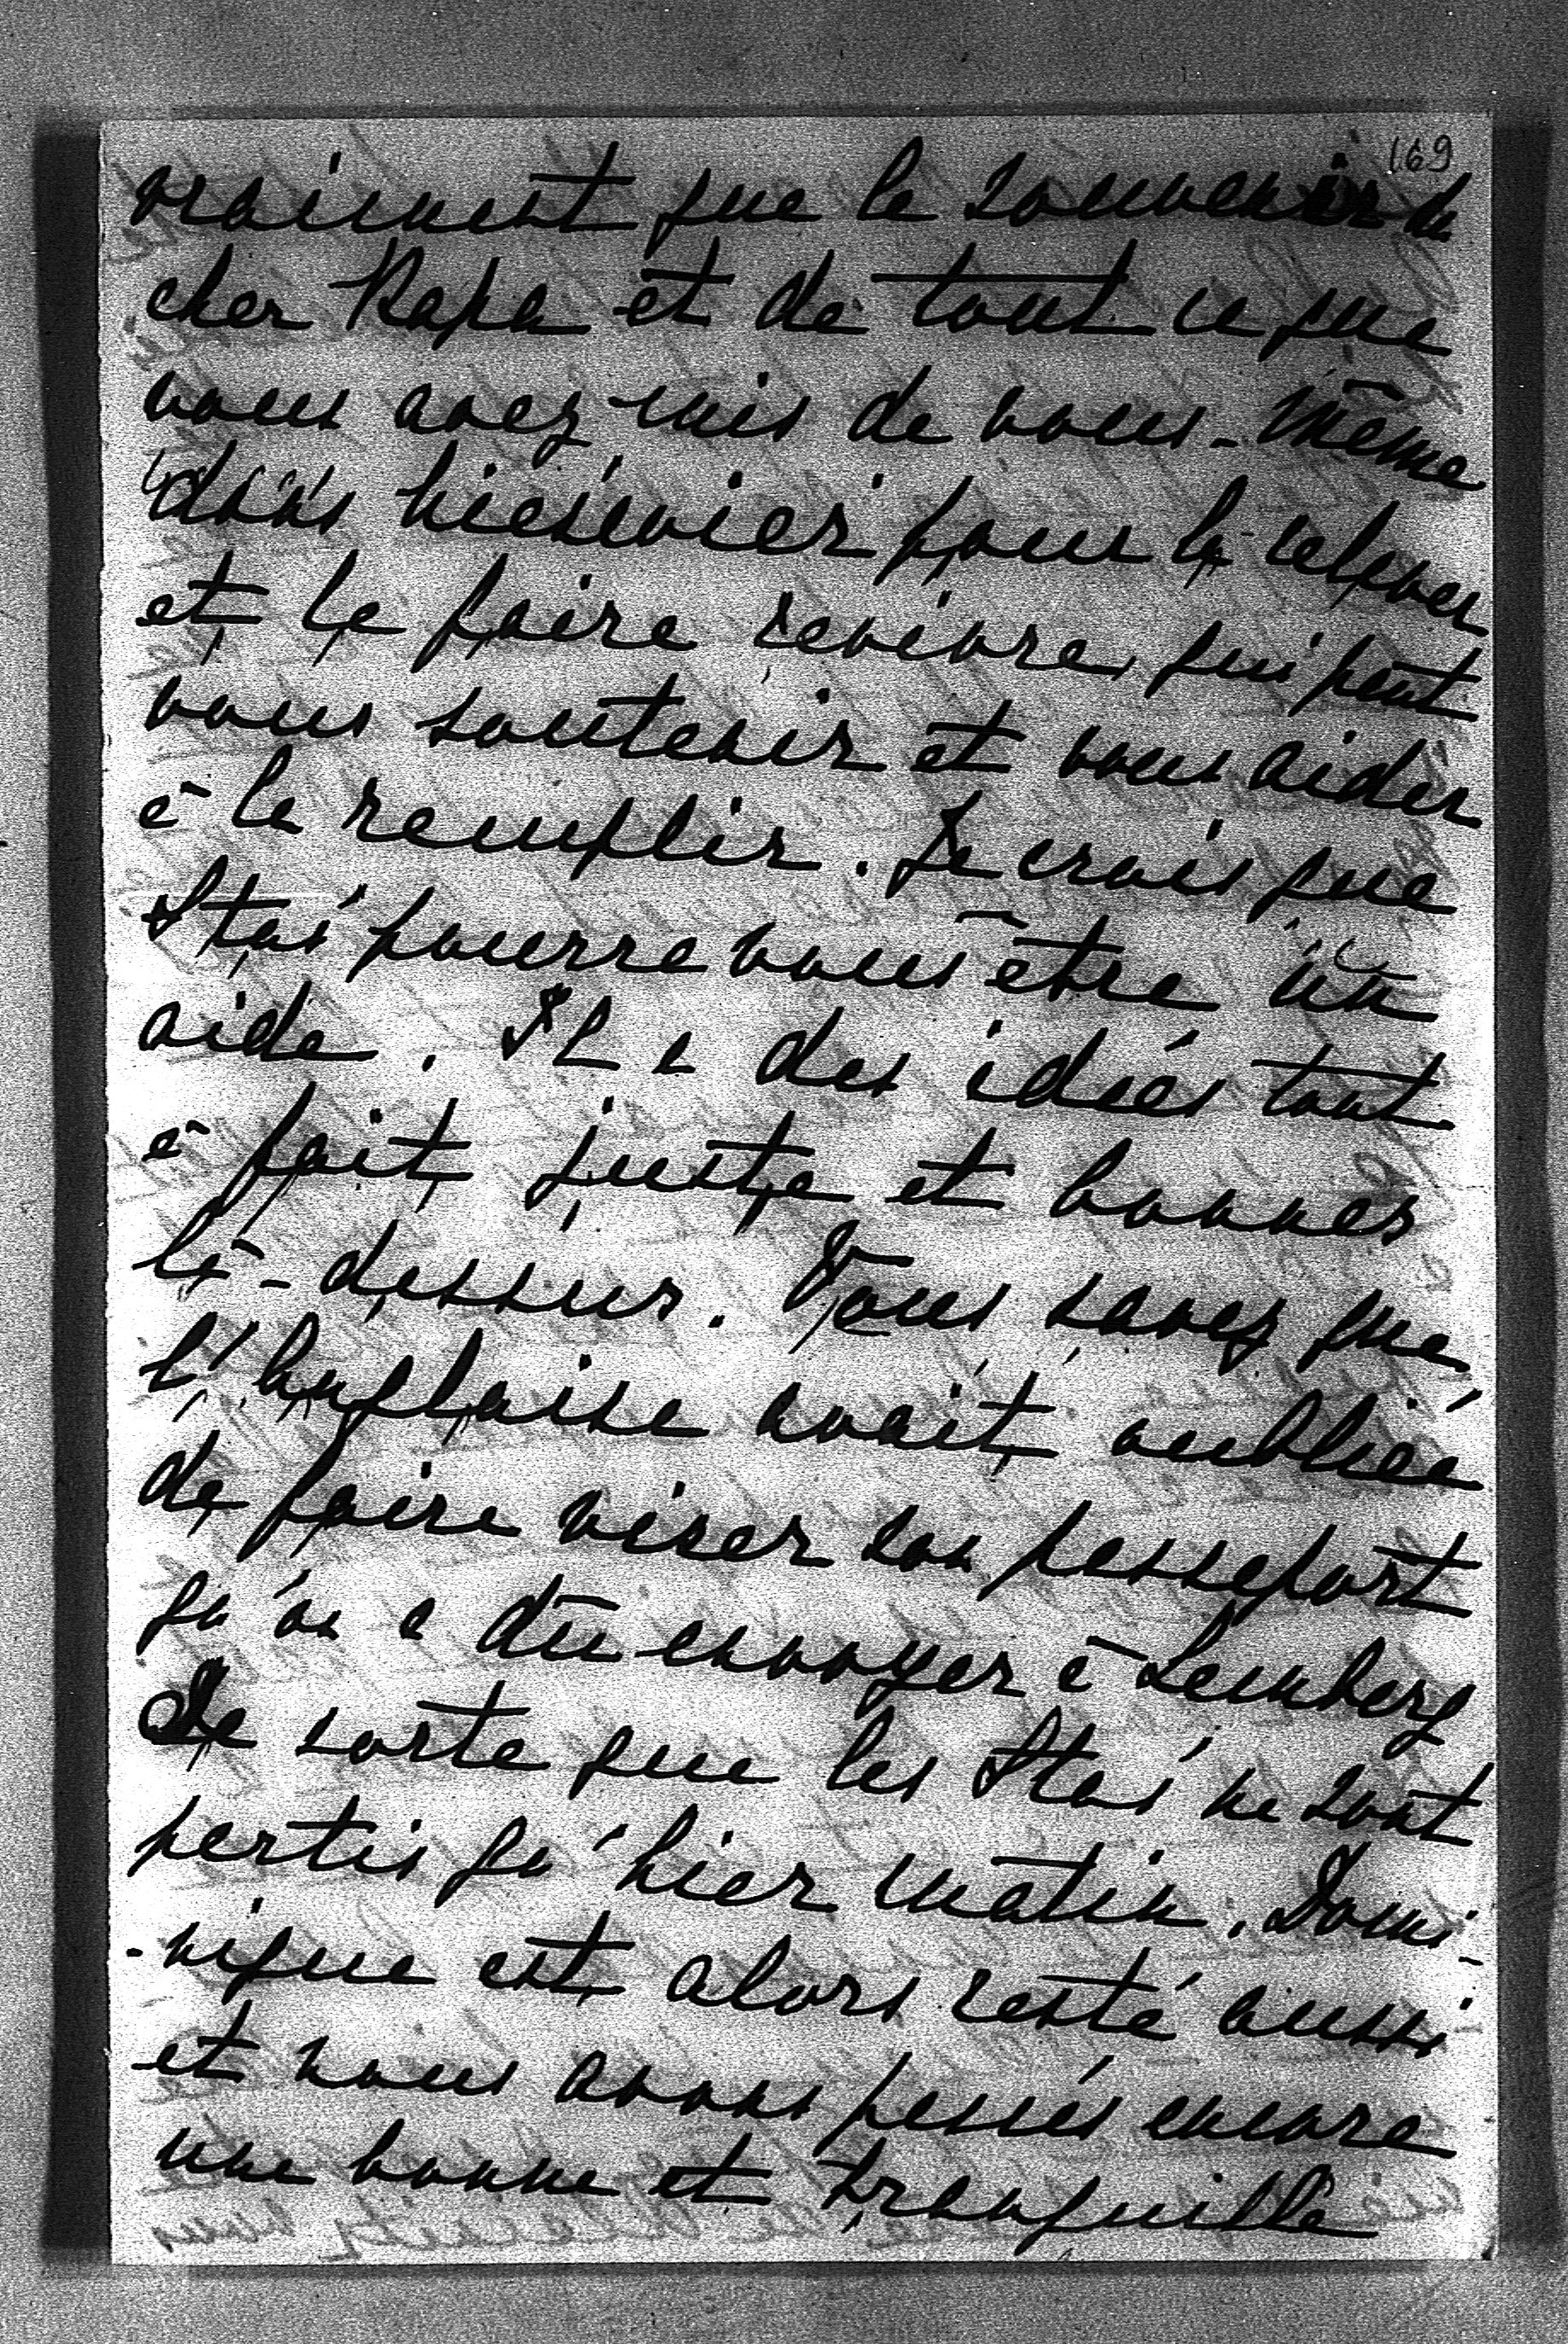 169
vraiment que le souvenir de
cher Papa et de tout ce que
vous avez mis de vous-même
dans Nieświez pour la relever
et le faire revivre, qui peut
vous soutenir et vous aider
à la remplir. Je crois que
Staś pourra vous être un
aide. Il a des idées tout
à fait juste et bonnes
là-dessus. Vous savez que
l'Anglaise avait oubliée
de faire viser son passeport
qu'on a dû envoyer à Lemberg
De sorte que les Staś ne sont
partis qu'hier matin. Domi-
-nique est alors resté aussi
et nous avons passés encore
une bonne et tranquille